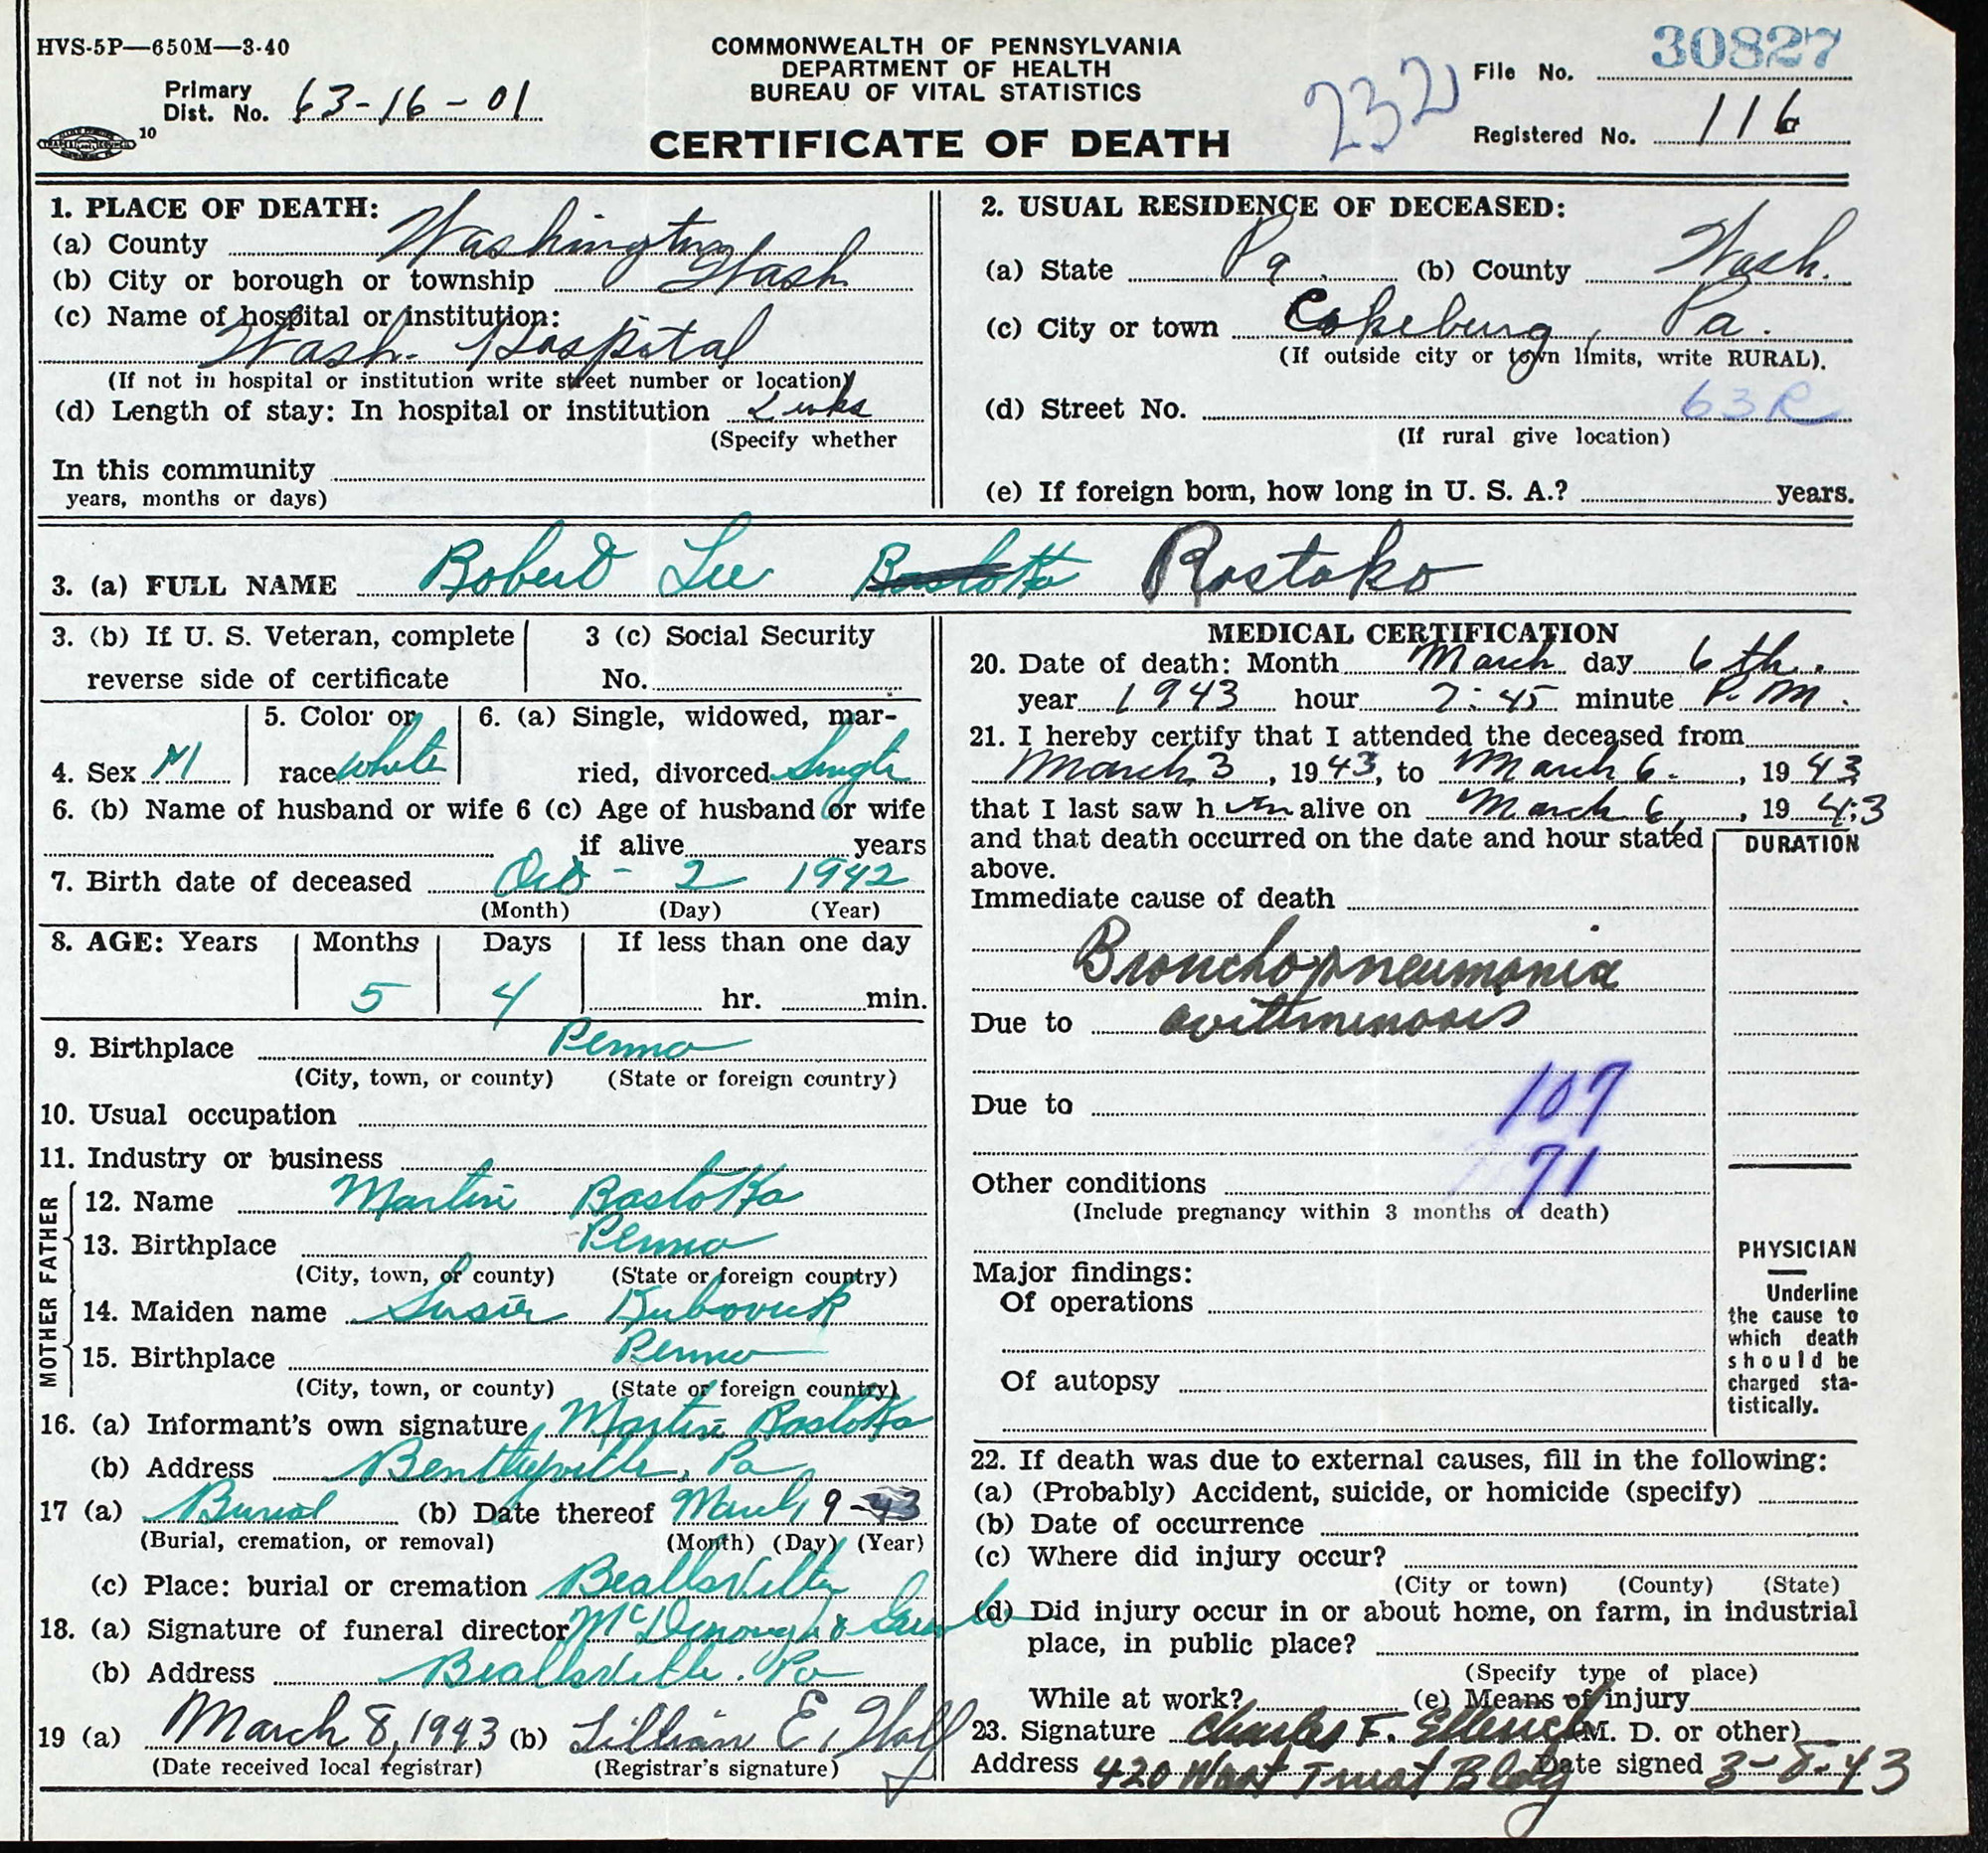 HVS-5P—650M—3-40
COMMONWEALTH OF PENNSYLVANIA
DEPARTMENT OF HEALTH
BUREAU OF VITAL STATISTICS
CERTIFICATE OF DEATH
Primary
Dist. No. 63-16-01
10
2321
File No. 30827
Registered No. 116
1. PLACE OF DEATH:
(a) County Washington
(b) City or borough or township Wash
(c) Name of hospital or institution:
Wash. Hospital
(If not in hospital or institution write street number or location)
(d) Length of stay: In hospital or institution
(Specify whether
In this community
years, months or days)
2. USUAL RESIDENCE OF DECEASED:
(a) State Pa. (b) County Wash.
(c) City or town Cokeburg, Pa.
(If outside city or town limits, write RURAL).
(d) Street No. 63R
(If rural give location)
(e) If foreign born, how long in U. S. A.? years.
3. (a) FULL NAME Robert Lee Rostoko
3. (b) If U. S. Veteran, complete
reverse side of certificate
3 (c) Social Security
No.
4. Sex M
5. Color or
race white
6. (a) Single, widowed, mar-
ried, divorced Single
6. (b) Name of husband or wife 6 (c) Age of husband or wife
if alive years
7. Birth date of deceased Oct - 2 1942
(Month) (Day) (Year)
8. AGE: Years Months Days If less than one day
5 4 hr. min.
9. Birthplace Penna
(City, town, or county) (State or foreign country)
10. Usual occupation
11. Industry or business
FATHER
12. Name Martin Rostoka
13. Birthplace Penna
(City, town, or county) (State or foreign country)
MOTHER
14. Maiden name Susie
15. Birthplace Penna
(City, town, or county) (State or foreign country)
16. (a) Informant's own signature Martin Rostoka
(b) Address Bentleyville, Pa
17 (a) Burial (b) Date thereof March 9-43
(Burial, cremation, or removal) (Month) (Day) (Year)
(c) Place: burial or cremation Beallsville
18. (a) Signature of funeral director McDonough &
(b) Address Beallsville. Pa
19 (a) March 8, 1943 (b) Lillian E.
(Date received local registrar) (Registrar's signature)
MEDICAL CERTIFICATION
20. Date of death: Month March day 6th.
year 1943 hour 7:45 minute P.M.
21. I hereby certify that I attended the deceased from
March 3, 1943, to March 6., 1943
that I last saw him alive on March 6, 1943
and that death occurred on the date and hour stated
above.
DURATION
Immediate cause of death
Bronchopneumonia
Due to avitaminosis
107
Due to
71
Other conditions
(Include pregnancy within 3 months of death)
Major findings:
Of operations
Of autopsy
PHYSICIAN
Underline
the cause to
which death
should be
charged sta-
tistically.
22. If death was due to external causes, fill in the following:
(a) (Probably) Accident, suicide, or homicide (specify)
(b) Date of occurrence
(c) Where did injury occur?
(City or town) (County) (State)
(d) Did injury occur in or about home, on farm, in industrial
place, in public place?
(Specify type of place)
While at work? (e) Means of injury
23. Signature Charles F. (M. D. or other)
Address 420 Trust Bldg Date signed 3-8-43